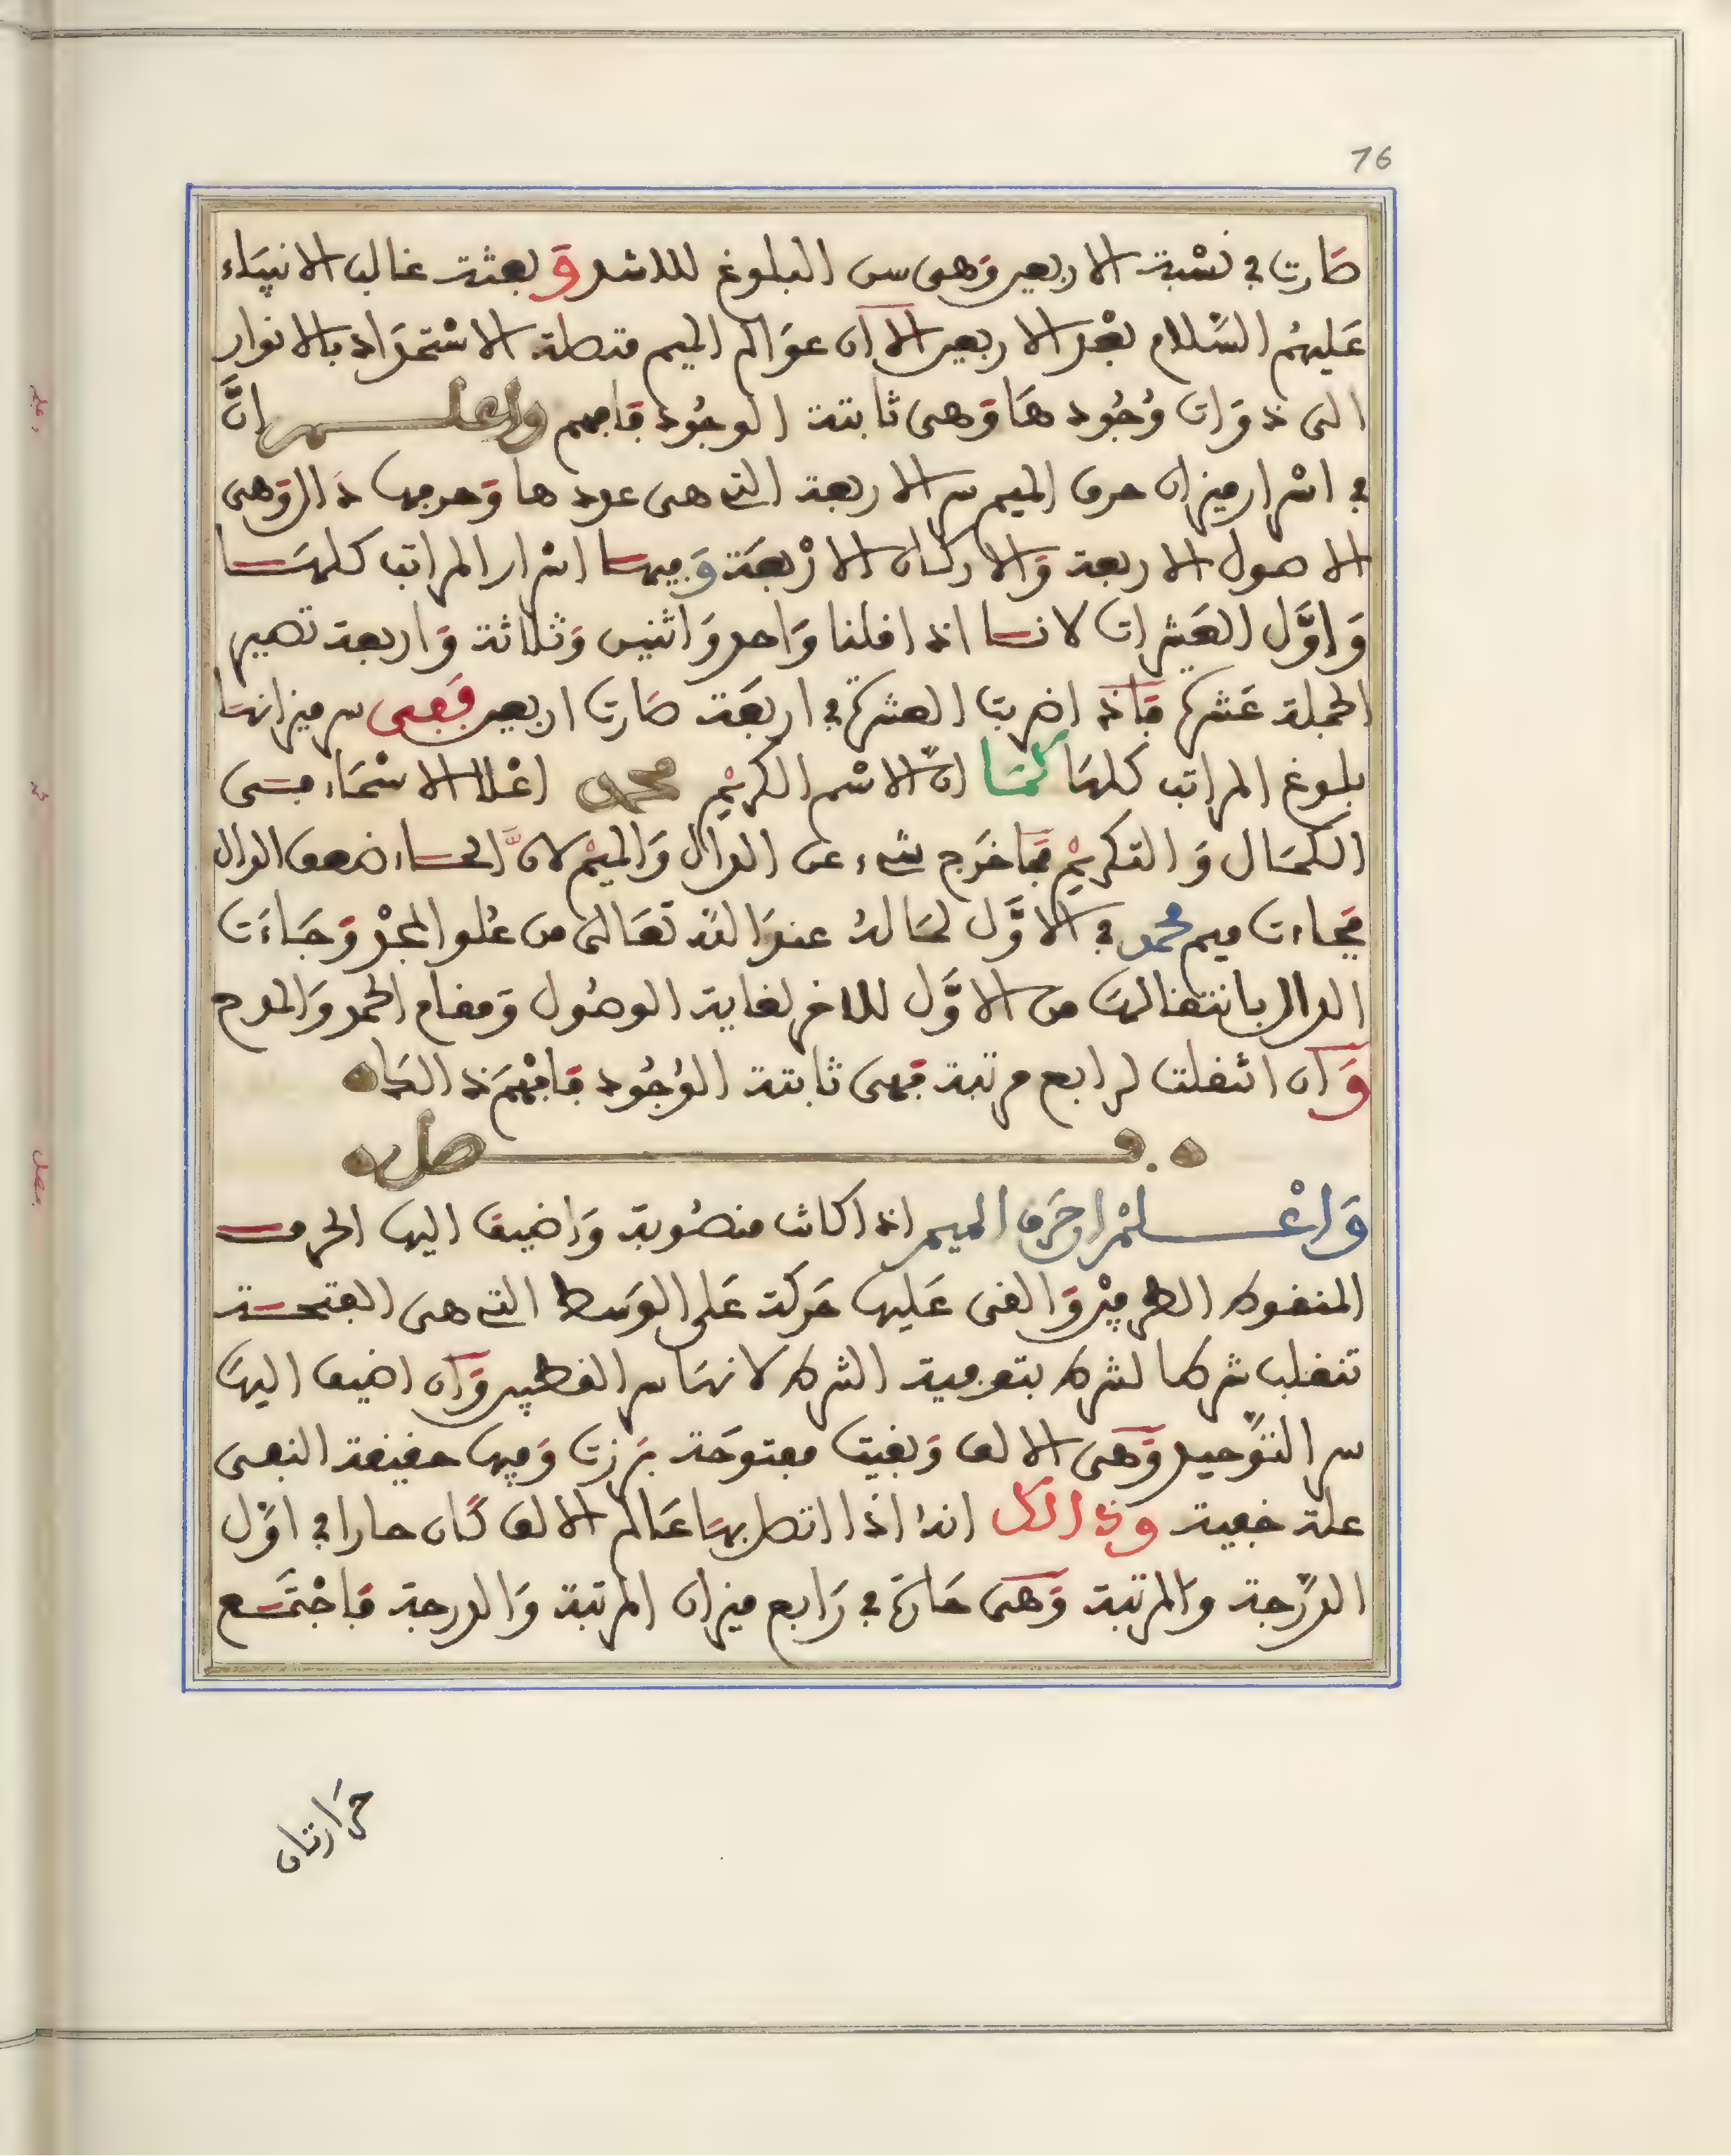 76
صَارت في نسْبة الاربعين وَهى سن البلوغ للاشد وَبعثة غالب الانبيَاء
عَليهمُ السَّلام بعْد الاربعين الا ان عوَالم الميم متصلة الاسْتمدَاد بالانوار
التى ذوَات وُجُودهَا وَهى ثابتة الوجُود فافهم واعلم انَّ
في اسْرار ميزان حرف الميم سر الاربعة التي هى عددها وَحرفها دال وَهى
الاصول الاربعة وَالاركان الارْبعَة وَفيها اسْرار المراتب كلها
وَاوَّل العَشرات لانها اذا قلنا وَاحد وَاثنين وَثلاثة وَاربعة تصير
الجملة عَشرة فَاذا ضربت العشرة في اربعَة صَارت اربعين فَفى سر ميزانهَا
بلوغ المراتب كلهَا كمَا انّ الاسْم الكريْم محمد اعْلا الاسْمَاء فى
الكمَال وَالتكريْم فمَا خرَج شيء عن الدال وَالميْم لانَّ الحاء ضعف الدال
فجَاءت ميم محمد في الاوَّل لمَا لهُ عندَ اللهِ تعَالى من عُلو المجْد وَجَاءَت
الدال بانتقالهَا من الاوَّل للاخر لغاية الوصُول وَمقام الحمد وَالمدح
وَان انتقلت لرابع مرتبة فهى ثابتة الوُجُود فافْهَم ذالك
فصل
وَاعْلمْ ان حَرف الميم اذا كانت منصُوبة وَاضيف اليها الحرف
المنقوط الطرفيْن وَالقى عَليها حَركة عَلى الوَسط التي هى الفتحة
تنقلب شرطا لشرط بتوفية الشرط لانهَا سر القطبين وَان اضيف اليهَا
سر التَّوحيد وَهى الالف وَبقيت مفتوحَة برَزت وَفيها حقيقة النفى
علة خفية وذالك انهُ اذا اتصل بهَا عَالم الالف كَان حارا في اوَّل
الدرَّجة وَالمرتبة وَهى حَارة في رَابع ميزان المرتبة وَالدرجة فَاجْتمَع
حرَارتان